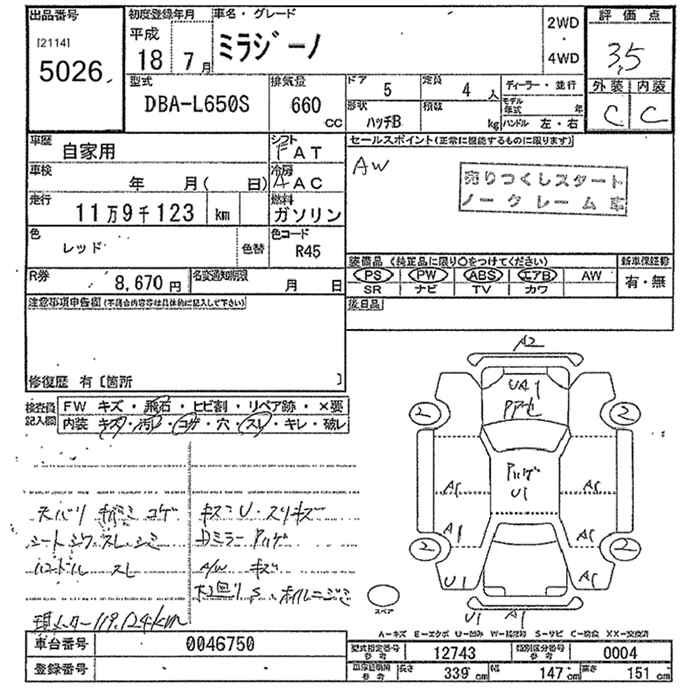 出品番号 初度登録年月 車名・グレード 2WD 評価点
[2114] 5026 平成 18 7月 ミラジーノ 4WD 3.5
型式 排気量 ドア 5 定員 4人 ディーラー・並行 外装 内装
DBA-L650S 660 CC 形状 ハッチB 積載 kg モデル年式 年 ハンドル 左・右 C C
車歴 自家用 シフト FAT セールスポイント(正常に機能するものに限ります)
車検 年 月( 日) 冷房 AAC AW 売りつくしスタート
走行 11万9千123 km 燃料 ガソリン ノークレーム車
色 レッド 色替 色コード R45
装備品 (純正品に限り○をつけてください) 新車保証書
R券 8,670円 名変通知期限 月 日 PS PW ABS エアB AW 有・無
SR ナビ TV カワ
注意事項申告欄(不具合内容等は具体的に記入して下さい) 後日品
修復歴 有〔箇所 〕
検査員記入欄 FW キズ・飛石・ヒビ割・リペア跡・×要
内装 キズ・汚れ・コゲ・穴・スレ・キレ・破レ
A2
UA1
Pアセ
2 2
Pハゲ
U1
A1 A1
A1 A1
2 2
U1 A1
U1 A1
スペア
天バリ キズ シミ コゲ キズミU・スリキズ
シートシワ・スレ・シミ Dミラー Pハゲ
ハンドル スレ A/W キズ
下回りS・オイルニジミ
現メーター119,124km
A-キズ E-エクボ U-凹み W-補修跡 S-サビ C-腐食 XX-交換済
車台番号 0046750 型式指定番号 参考 12743 類別区分番号 参考 0004
登録番号 参考 長さ 339cm 幅 147cm 高さ 151cm